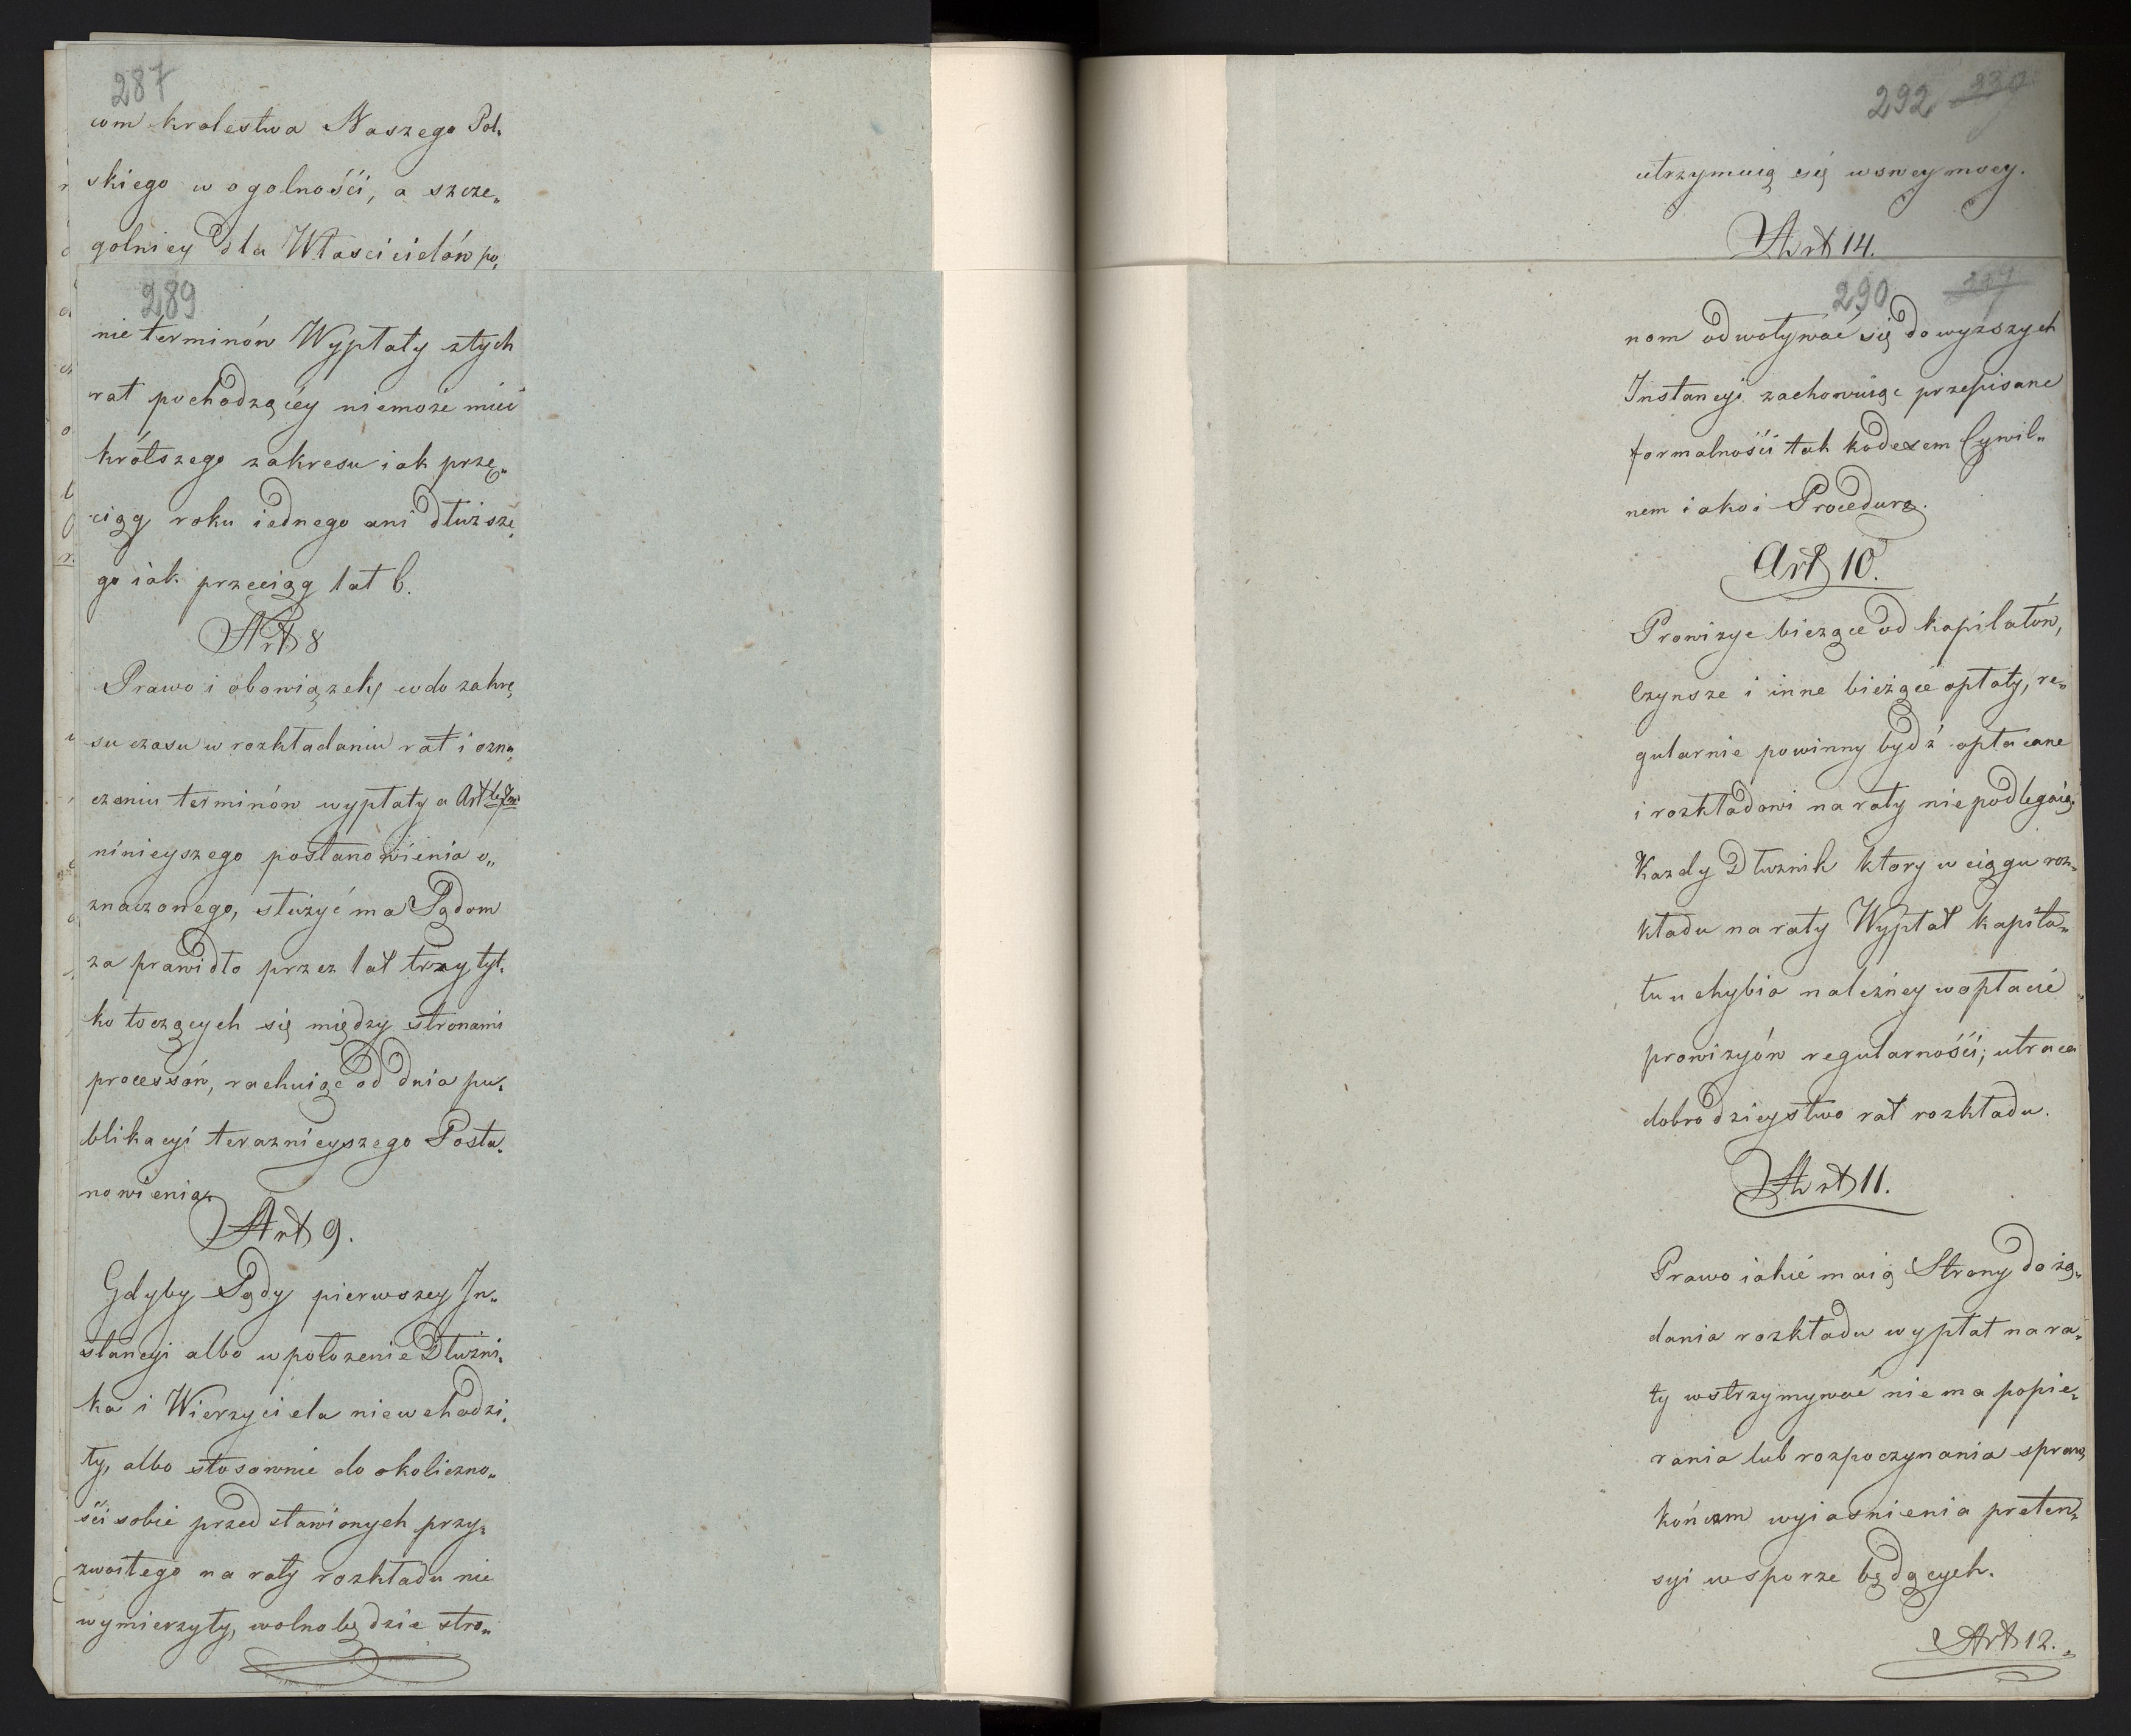 287
com krolestwa Naszego Pol„
skiego w ogolnośći, a szcze„
golniey dla Włascicielów po„
289
nie terminów Wypłaty ztych
rat pochodzącéy niemoże mieć
krótszego zakresu iak prze„
ciąg roku iednego ani dłuższe„
go iak przeciąg lat 6.
Art 8
Prawo i obowiązek, codo zakre„
su czasu w rozkładaniu rat i ozna„
czeniu terminów wypłaty a Art
ninieyszego postanowienia o„
znaczonego, służyć ma Sądom
za prawidło przez lat trzy tyl„
ko toczących się między stronami
processów, rachuiąc od dnia pu„
blikacyi teraznieyszego Posta„
nowienia.
Art 9.
Gdyby Sądy pierwszey In„
stancyi albo w położenie Dłużni„
ka i Wierzyciela niewchodzi„
ły, albo stosownie do okoliczno„
śći sobie przedstawionych przy„
zwoitego na raty rozkładu nie
wymierzyły, wolno będzie stro„
292 239
utrzymuią się wswey mocy.
Art 14.
290
nom odwoływać się do wyższych
Instancyi zachowuiąc przepisane
formalnośći tak kodexem Cywil„
nem iako i Procedurą.
Art 10.
Prowizye bieżące od kapitałów,
Czynsze i inne bieżące opłaty, re„
gularnie powinny bydź opłacane
i rozkładowi na raty niepodlegaią.
Kazdy Dłużnik ktory w ciągu roz„
kładu na raty Wypłat kapita„
łu uchybia należney wopłacie
prowizyów regularnośći, utraca
dobrodzieystwo rat rozkładu.
Art 11.
Prawo iakié maią Strony do żą„
dania rozkładu wypłat na ra„
ty wstrzymywać nie ma popie„
rania lub rozpoczynania spraw,
końcem wyiasnienia preten„
syi wsporze będących.
Art 12.